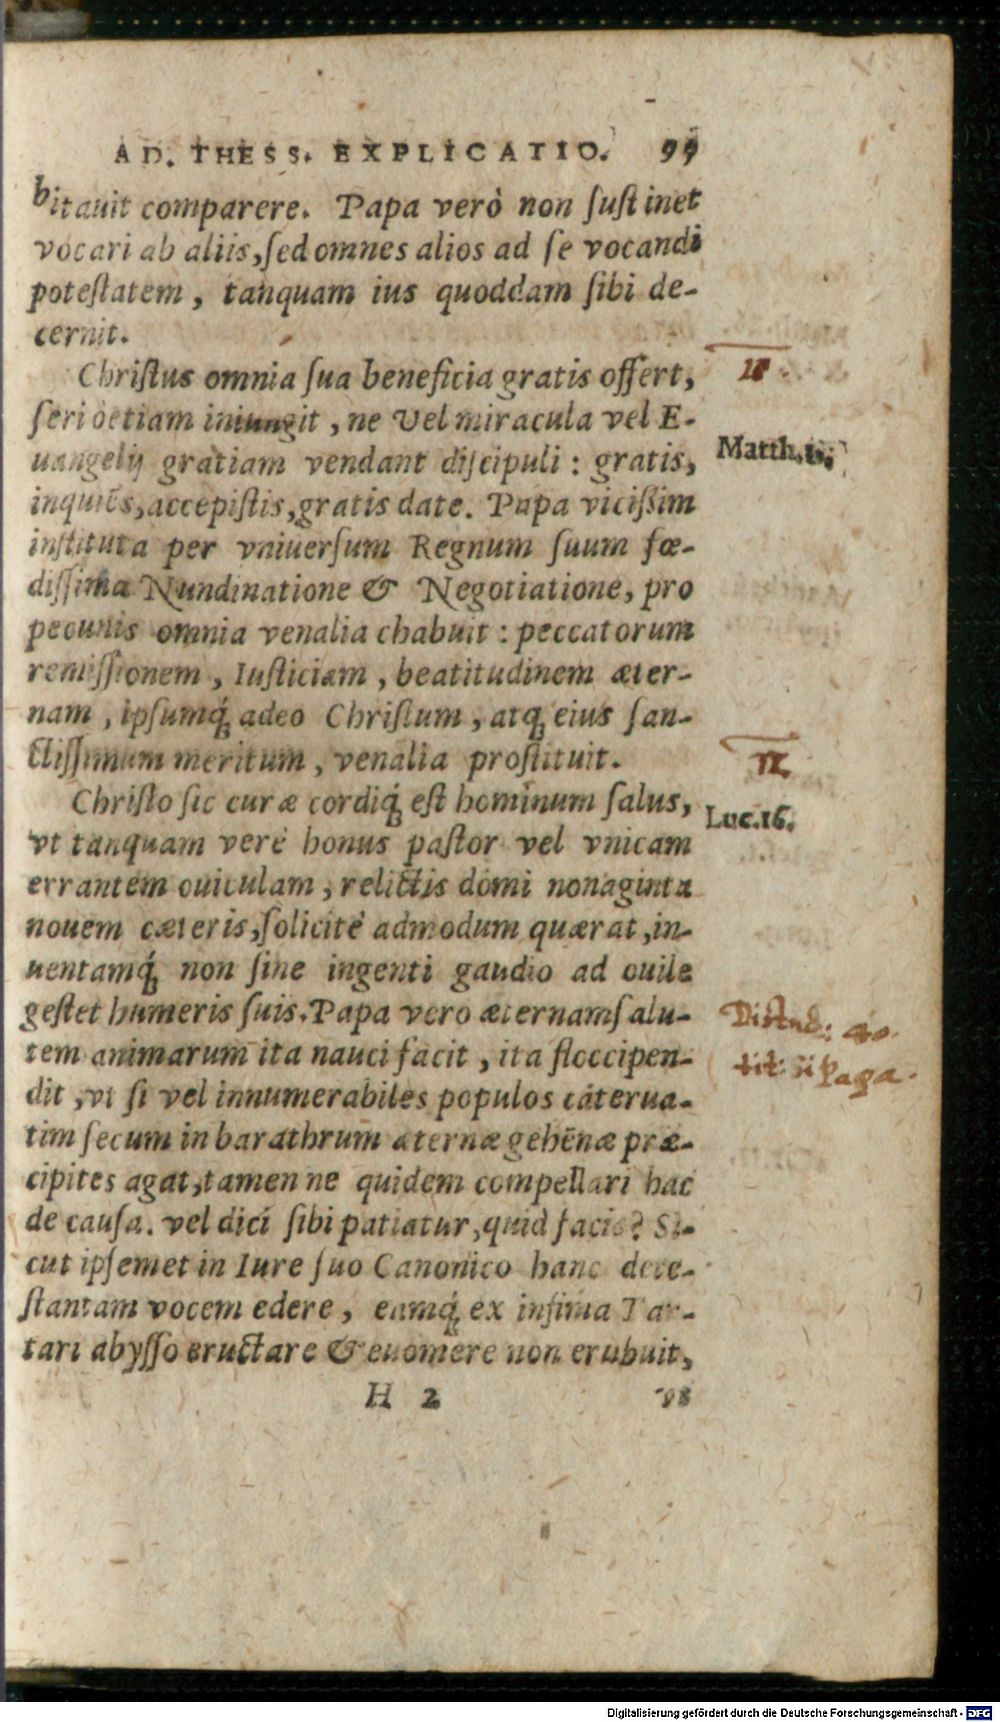 AD. THESS. EXPLICATIO. 99
bitauit comparere. Papa verò non sustinet
vocari ab aliis, sed omnes alios ad se vocandi
potestatem, tanquam ius quoddam sibi de-
cernit.
Christus omnia sua beneficia gratis offert,
serio etiam iniungit, ne vel miracula vel E-
uangelij gratiam vendant discipuli: gratis,
inquiẽs, accepistis, gratis date. Papa vicissim
instituta per vniuersum Regnum suum fœ-
dissima Nundinatione & Negotiatione, pro
pecuniis omnia venalia ehabuit: peccatorum
remissionem, Iusticiam, beatitudinem æter-
nam, ipsumq́; adeo Christum, atq; eius san-
ctissimum meritum, venalia prostituit.
Matth.
Christo sic curæ cordiq́; est hominum salus,
vt tanquam verè bonus pastor vel vnicam
errantem ouiculam, relictis domi nonaginta
nouem cæteris, solicitè admodum quærat, in-
uentamq́; non sine ingenti gaudio ad ouile
gestet humeris suis. Papa vero æternam salu-
tem animarum ita nauci facit, ita floccipen-
dit, vt si vel innumerabiles populos caterua-
tim secum in barathrum æternæ gehẽnæ præ-
cipites agat, tamen ne quidem compellari hac
de causa. vel dici sibi patiatur, quid facis? Si-
cut ipsemet in Iure suo Canonico hanc dete-
stantam vocem edere, eamq́; ex infima Tar-
tari abysso eructare & euomere non erubuit,
Luc.16.
Distnc: 40
tit: si Papa.
H 2
Digitalisierung gefördert durch die Deutsche Forschungsgemeinschaft - DFG